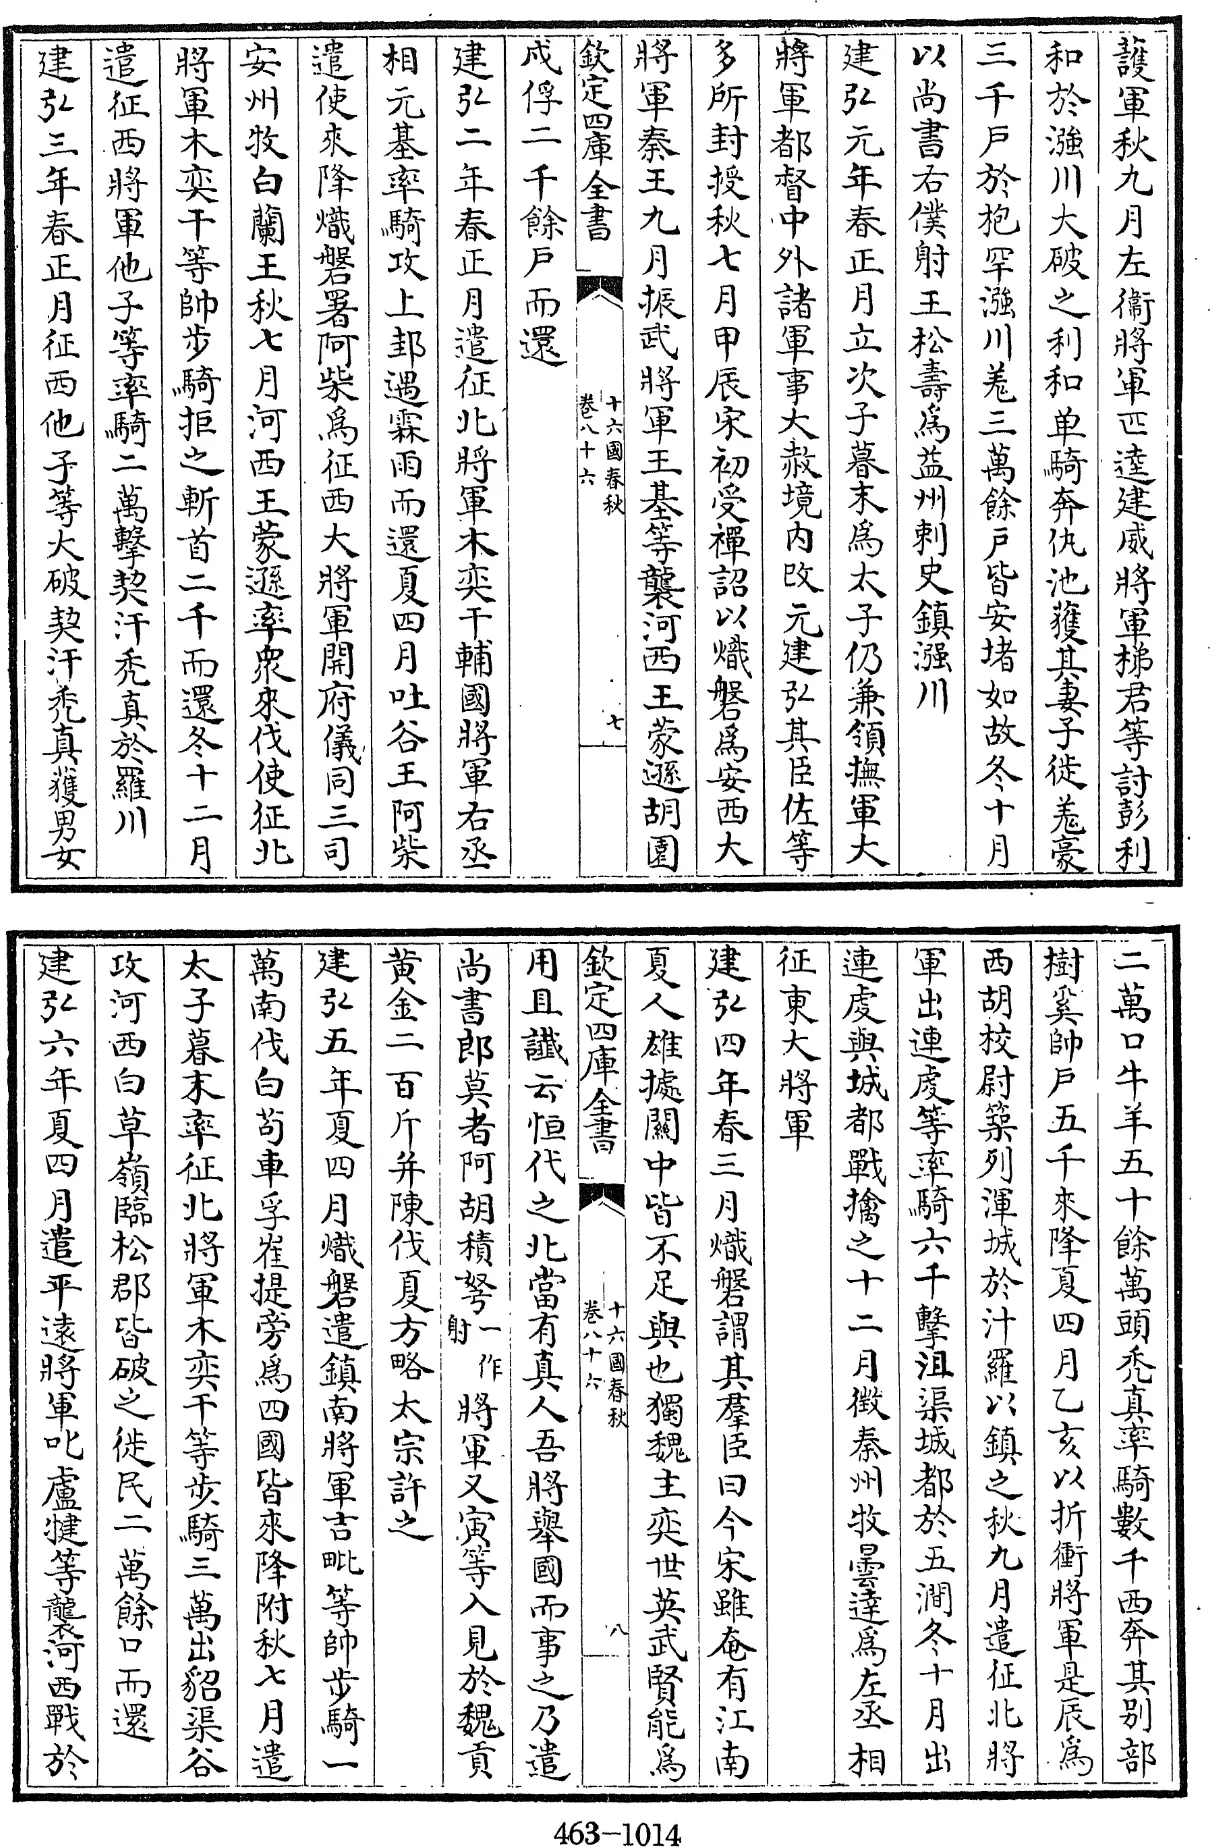 護軍秋九月左衞將軍匹逵建威將軍梯君等討彭利
和於漒川大破之利和单騎奔仇池獲其妻子徙羗豪
三千戸於枹罕漒川羗三萬餘戸皆安堵如故冬十月
以尚書右僕射王松壽爲益州刺史鎮漒川
建弘元年春正月立次子暮末爲太子仍兼領撫軍大
將軍都督中外諸軍事大赦境内改元建弘其臣佐等
多所封授秋七月甲辰宋初受禪詔以熾磐爲安西大
將軍秦王九月振武將軍王基等襲河西王蒙遜胡園
欽定四庫全書
十六國春秋
卷八十六
七
戍俘二千餘戸而還
建弘二年春正月遣征北將軍木奕干輔國將軍右丞
相元基率騎攻上邽遇霖雨而還夏四月吐谷王阿柴
遣使來降熾磐署阿柴爲征西大將軍開府儀同三司
安州牧白蘭王秋七月河西王蒙遜率衆來伐使征北
將軍木奕干等帥步騎拒之斬首二千而還冬十二月
遣征西將軍他子等率騎二萬擊契汗秃真於羅川
建弘三年春正月征西他子等大破契汗秃真獲男女
二萬口牛羊五十餘萬頭秃真率騎數千西奔其别部
樹奚帥戸五千來降夏四月乙亥以折衝將軍是辰爲
西胡校尉築列渾城於汁羅以鎮之秋九月遣征北將
軍出連虔等率騎六千擊沮渠城都於五澗冬十月出
連虔與城都戰擒之十二月徵秦州牧曇達爲左丞相
征東大將軍
建弘四年春三月熾磐謂其羣臣曰今宋雖奄有江南
夏人雄據關中皆不足與也獨魏主奕世英武賢能爲
欽定四庫全書
十六國春秋
卷八十六
八
用且讖云恒代之北當有真人吾將舉國而事之乃遣
尚書郎莫者阿胡積弩一作射將軍又寅等入見於魏貢
黄金二百斤并陳伐夏方略太宗許之
建弘五年夏四月熾磐遣鎮南將軍吉毗等帥步騎一
萬南伐白苟車孚崔提旁爲四國皆來降附秋七月遣
太子暮末率征北將軍木奕干等步騎三萬出貂渠谷
攻河西白草嶺臨松郡皆破之徙民二萬餘口而還
建弘六年夏四月遣平逺將軍叱盧犍等襲河西戰於
463-1014